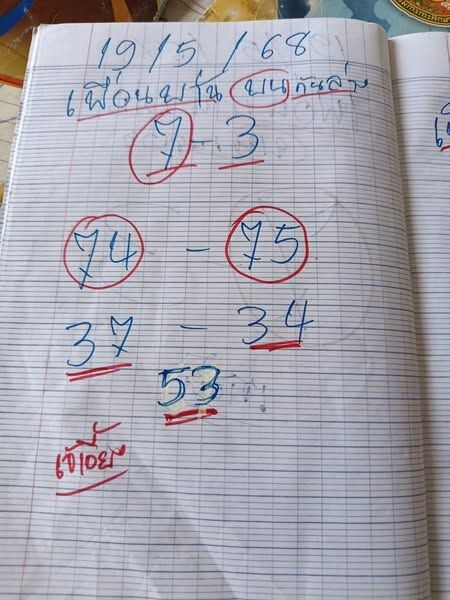 19/5/68
เพื่อนพาน บน กันล่าง
7-3
74 - 75
37 - 34
53